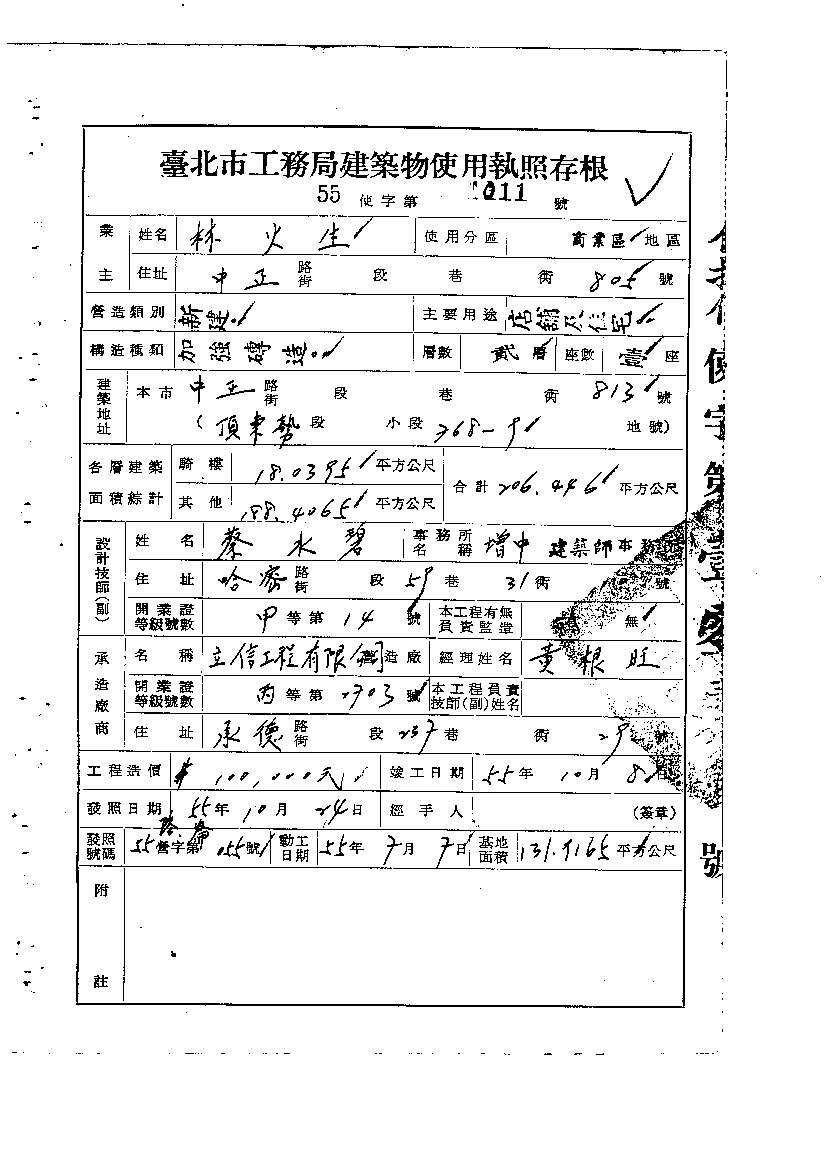 臺北市工務局建築物使用執照存根
55 使字第 1011 號
業主 姓名 林火生 使用分區 商業區 地區
住址 中正 路街 段 巷 衖 805 號
營造類別 新建。 主要用途 店舖及住宅
構造種類 加強磚造。 層數 貳層 座數 壹 座
建築地址 本市 中正 路街 段 巷 衖 813 號
(頂東勢 段 小段 368-9 地號)
各層建築面積綜計 騎樓 18.0395 平方公尺 合計 206.446 平方公尺
其他 188.4065 平方公尺
設計技師(副) 姓名 蔡水碧 事務所名稱 增中 建築師事務
住址 哈密 路街 段 59 巷 31 衖 號
開業證等級號數 甲 等第 14 號 本工程有無負責監造 無
承造廠商 名稱 立信工程有限公司 造廠 經理姓名 黃根旺
開業證等級號數 丙 等第 2703 號 本工程負責技師(副)姓名
住址 承德 路街 段 237 巷 衖 29 號
工程造價 $100,000元 竣工日期 55年 10月 8日
發照日期 55年 10月 24日 經手人 (簽章)
發照號碼 55 營字第 055號 動工日期 55年 7月 7日 基地面積 131.9165 平方公尺
附註
使字第 號